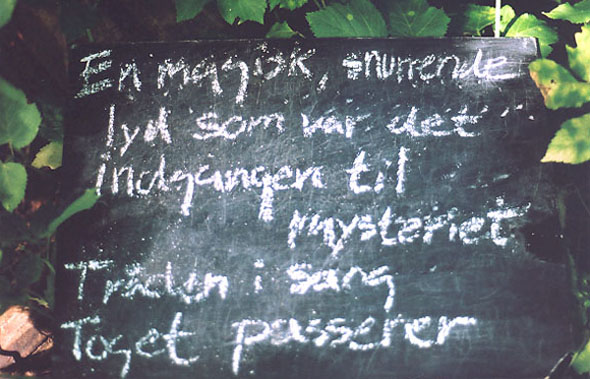 En magisk, snurrende
lyd som var det
indgangen til
mysteriet
Tråden i sang
Toget passerer